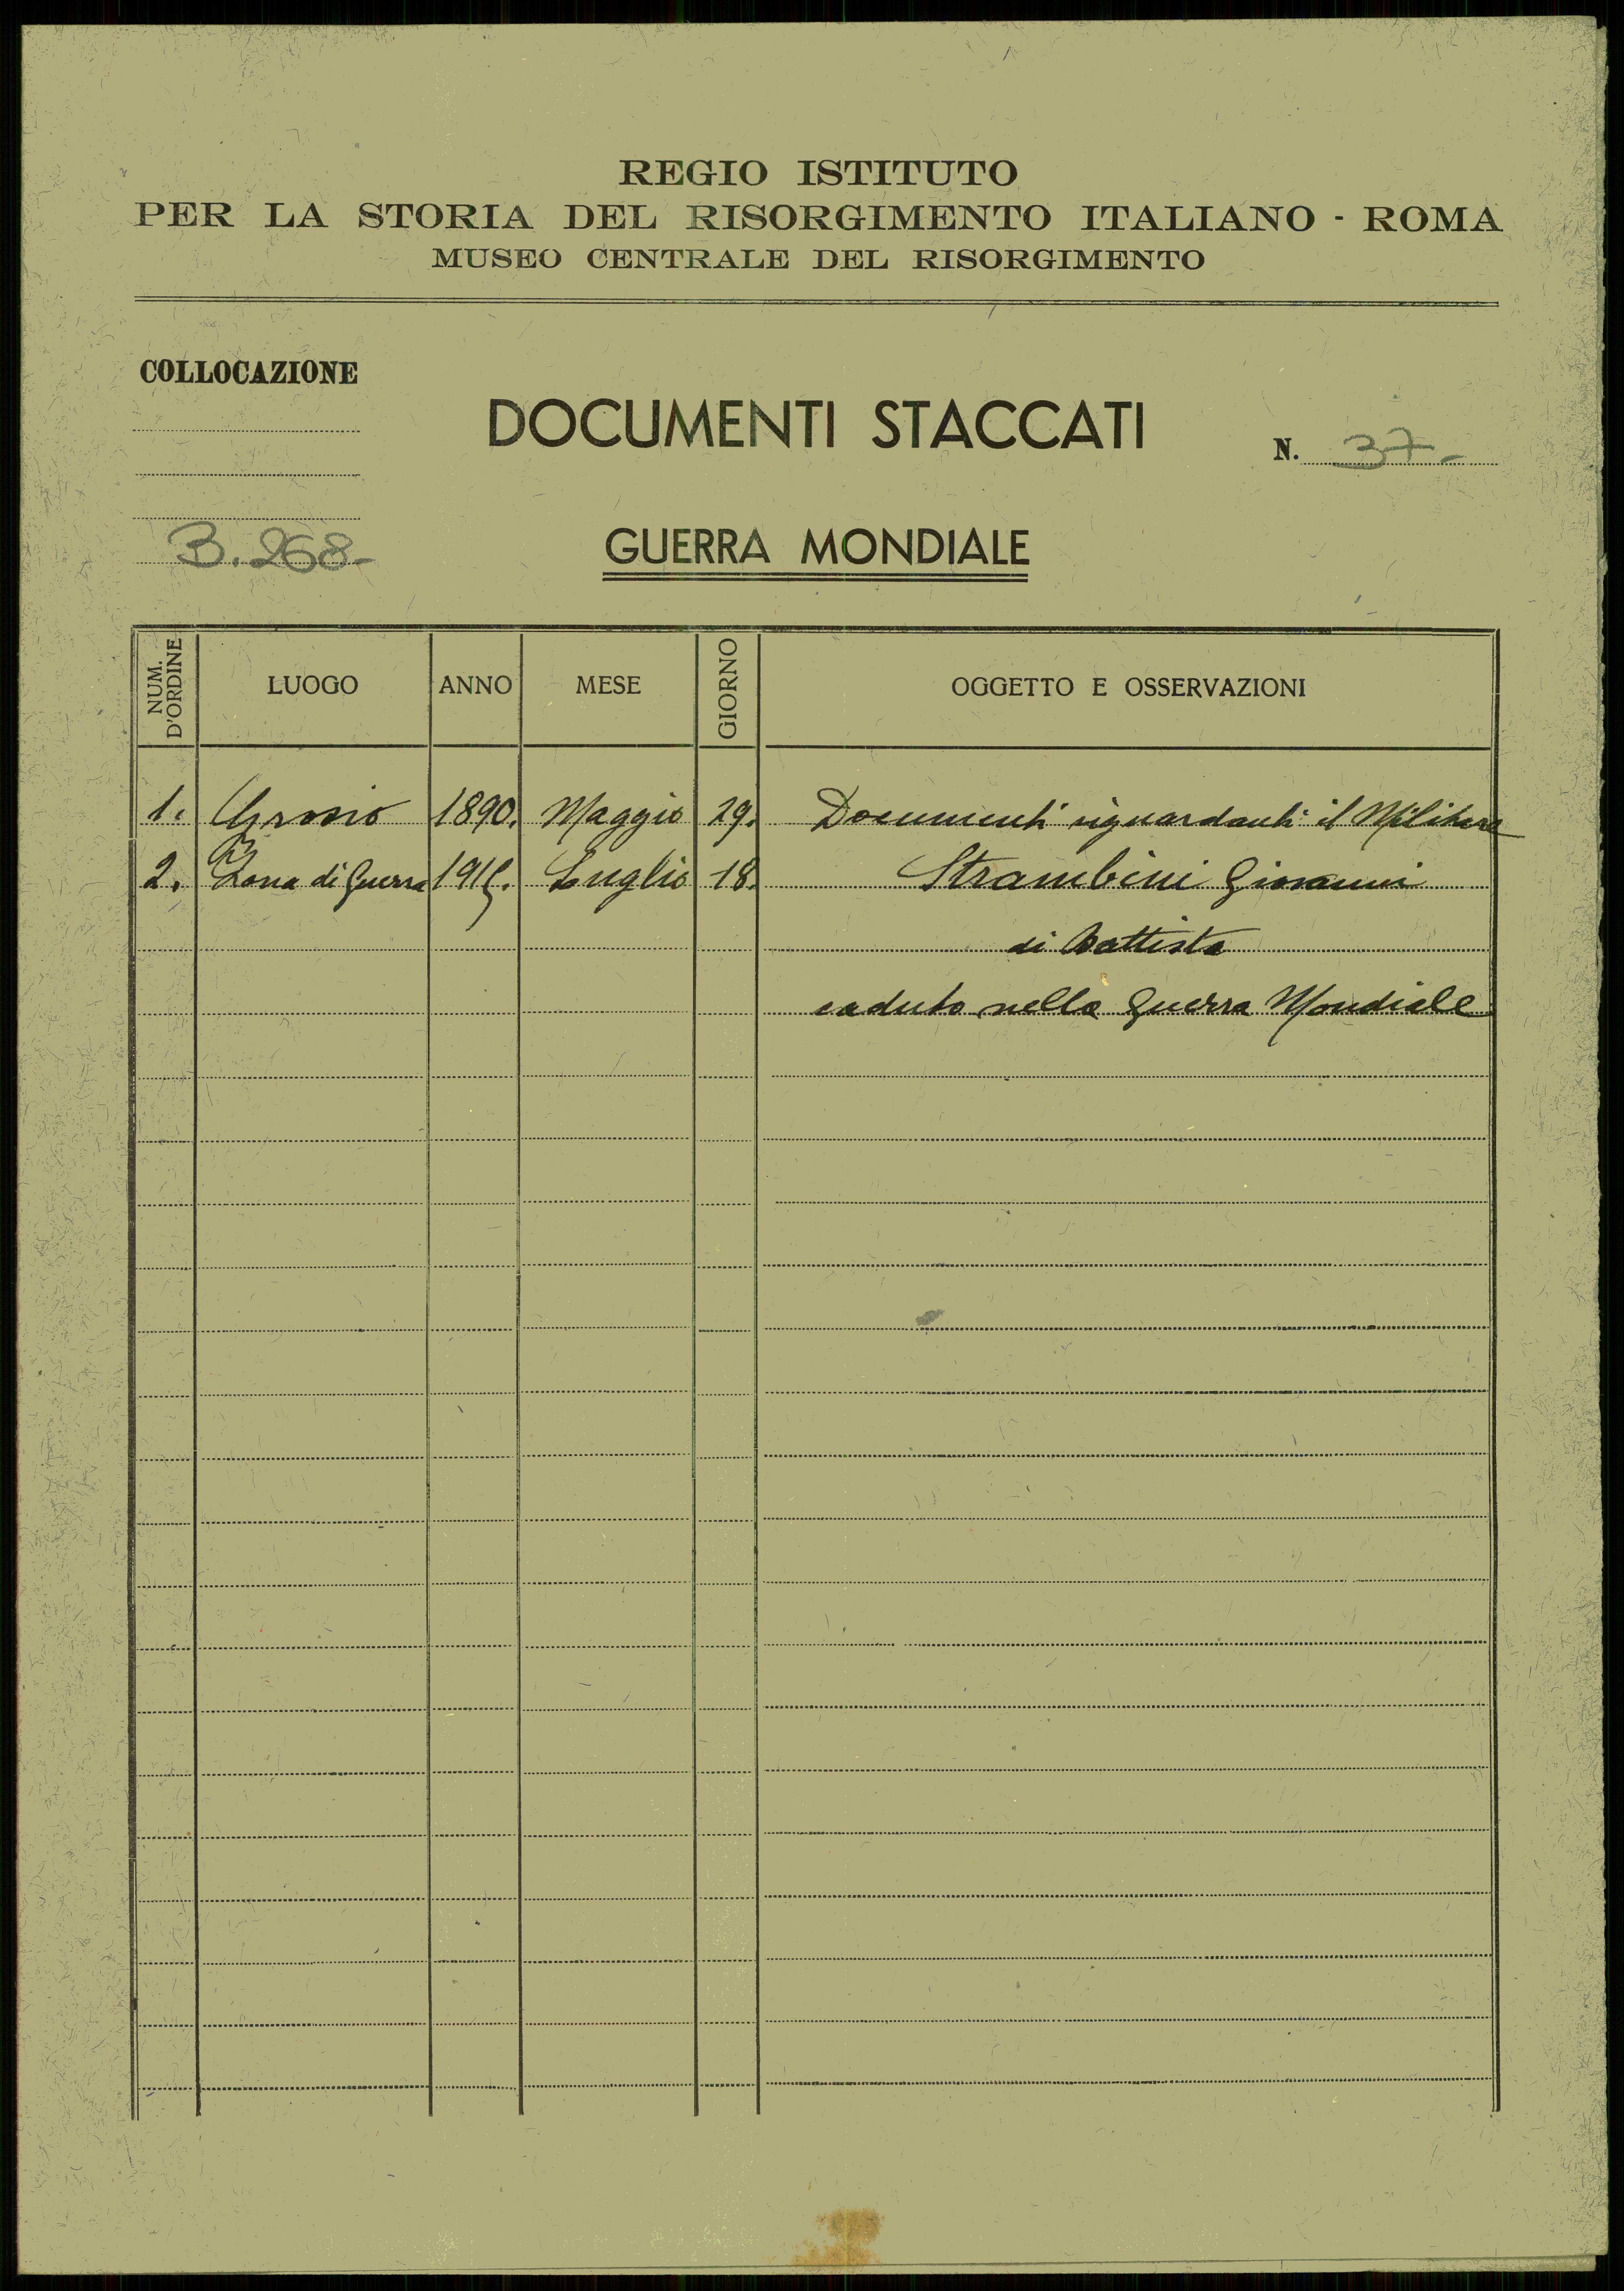 REGIO ISTITUTO
PER LA STORIA DEL RISORGIMENTO ITALIANO - ROMA
MUSEO CENTRALE DEL RISORGIMENTO
COLLOCAZIONE
DOCUMENTI STACCATI
N. 37-
B. 268-
GUERRA MONDIALE
NUM. D'ORDINE LUOGO ANNO MESE GIORNO OGGETTO E OSSERVAZIONI
1. Grosio 1890. Maggio 29. Documenti riguardanti il Militare
2. Zona di Guerra 1915. Luglio 18. Strambini Giovanni
di Battista
caduto nella Guerra Mondiale